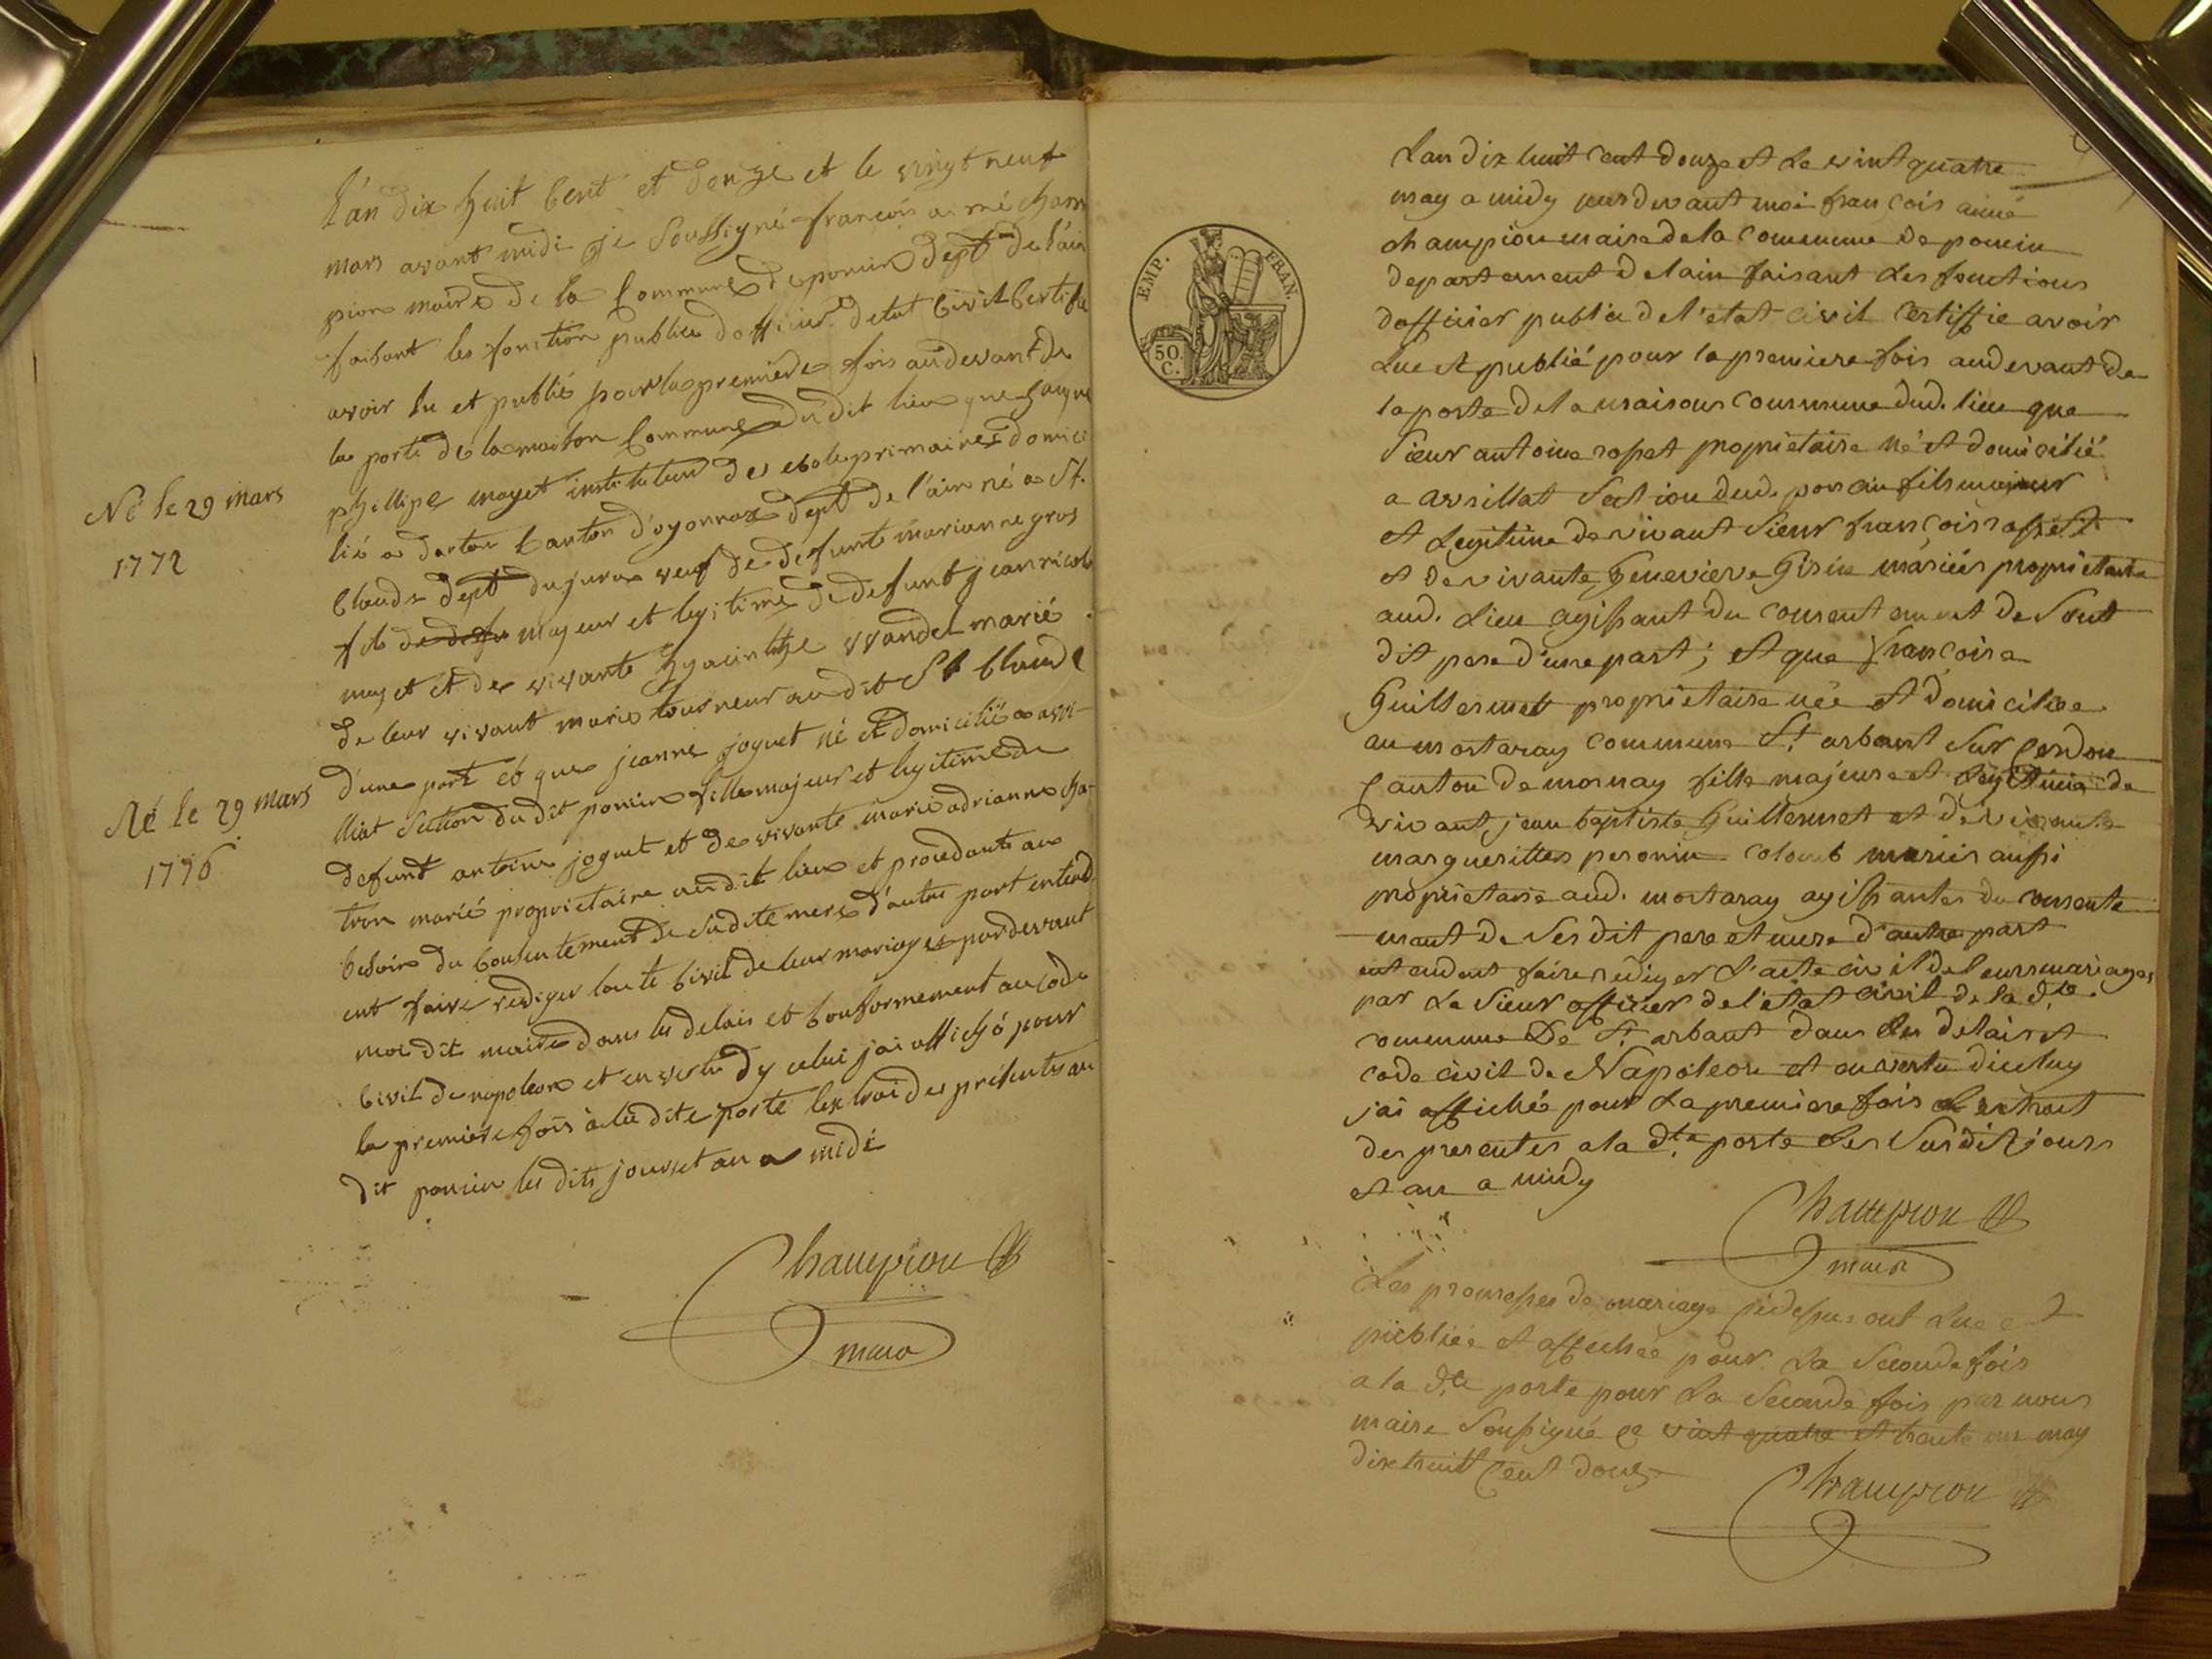 L'an dix huit Cent et douze et le vingt neuf
mars avant midi je Soussigné françois aimé cham
pion maire de la Commune de poncin dept. de l'ain
faisant les fonction public d'officier detat Civil Certifie
avoir lu et publié pour la premiere fois au devant de
la porte de la maison Commune du dit lieu que jaque
phillipe mayet instituteur des ecole primaires domici
lié a dortan Canton d'oyonnax dept de l'ain né a St.
Claude dept du jura veuf de defunte marianne gros
fils de defu majeur et legitime de defunt jean nicol
mayet et de vivante hyacinthe vvandel marié
de leur vivant marié tourneur au dit St Claude
d'une part et que jeanne joguet né et domicilié a avri-
lliat Section du dit poncin fille majeur et legitime de
defunt antoine joguet et de vivante marie adrianne cha-
tron marié proprietaire au dit lieu et procedante au
besoin du Consentement de sa dite mere d'autre part entend
ent faire rediger lacte Civil de leur mariage pardevant
moi dit maire dans les delais et Conformement au Code
Civil de napoleon et en vertu d'y celui j'ai affiché pour
la premiere fois à la dite porte lextrai des présentes au
dit poncin les dits jour et an a midi
Champion
maire
Né le 29 mars
1772
Né le 29 mars
1776
EMP. FRAN.
50.
C.
Lan dix huit cent douze et le vint quatre
may a midy pardevant moi francois aimé
champion maire de la commune de poncin
departement de lain faisant les fonctions
dofficier public de l'etat civil certiffie avoir
lue et publié pour la premiere fois audevant de
la porte de la maison commune dud. lieu que
Sieur antoine ropet propriétaire né et domicilié
a avrillat Section dud. poncin fils majeur
et legitime de vivant Sieur francois ropet
et de vivante Genevieve Girin mariés proprietaire
aud. lieu agissant du consentement de Sont
dit pere d'une part; et que francoise
Guillermet propriétaire née et domiciliée
au mortaray commune St. arbant sur Cerdon
Canton de mornay fille majeure et legitime de
vivant jean baptiste Guillermet et de vivante
marguerittes peronin colomb mariés aussi
proprietaire aud. mortaray agissantes du consente
mant de Ses dit pere et mere d'autre part
entendent faire rediger l'acte civil de leurs mariages
par le Sieur officier de l'etat civil de la dte.
commune de St. arbant dans les delais et
code civil de Napoleon et en vertu dicelluy
jai affiché pour la premiere fois l'extrait
des presentes a la dte porte les Susdit jours
et an a midy
Champion
maire
Les promesses de mariage cidessus ont lue et
publiée et affichée pour la Seconde fois
a la dte porte pour la Seconde fois par nous
maire Soussigné ce vint quatre et trente un may
dix huit Cent douze
Champion